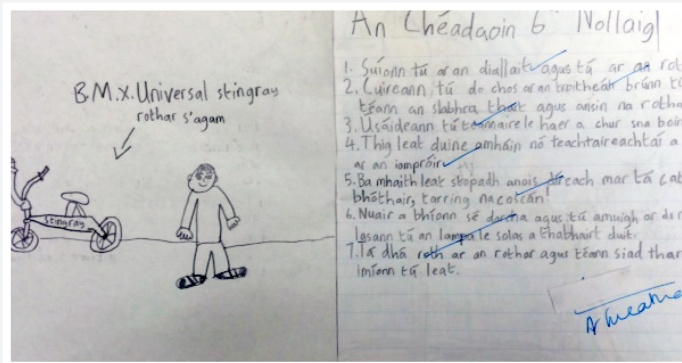 B.M.X. Universal stingray
rothar s'agam
Stingray
An Chéadaoin 6 Nollaig
1. Suíonn tú ar an diallait agus tú ar an rot
2. Cuireann tú do chos ar an troitheán brúnn tú
téann an slabhra thart agus ansin na rotha
3. Usáideann tú teannaire le haer a chur sna boin
4. Thig leat duine amháin nó teachtaireachtaí a
ar an iompróir
5. Ba mhaith leat stopadh anois díreach mar tá cat
bhóthair, tarring na coscán!
6. Nuair a bhíonn sé dorcha agus tú amuigh ar do r
lasann tú an lampa le solas a thabhairt duit.
7. Tá dhá roth ar an rothar agus téann siad thar
imíonn tú leat.